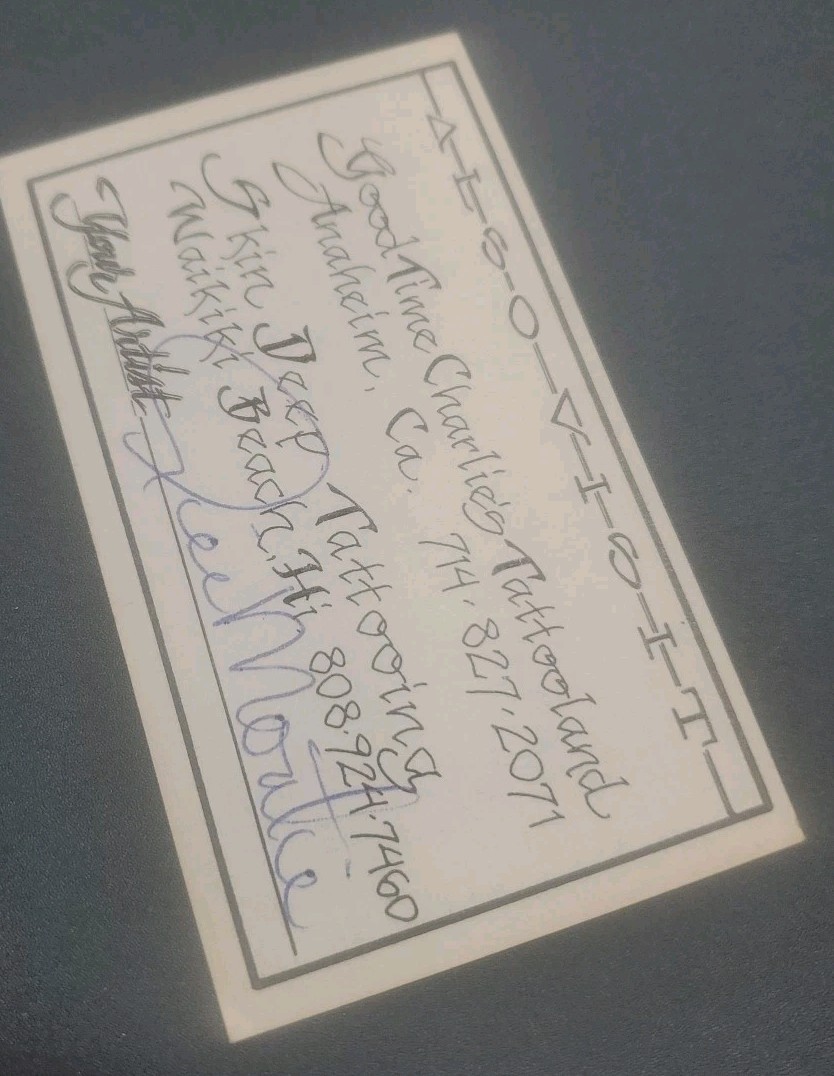 —A—L—S—O—V—I—S—I—T—
Good Time Charlie's Tattooland
Anaheim, Ca. 714.827.2071
Skin Deep Tattooing
Waikiki Beach, Hi 808.924.7460
Your Artist